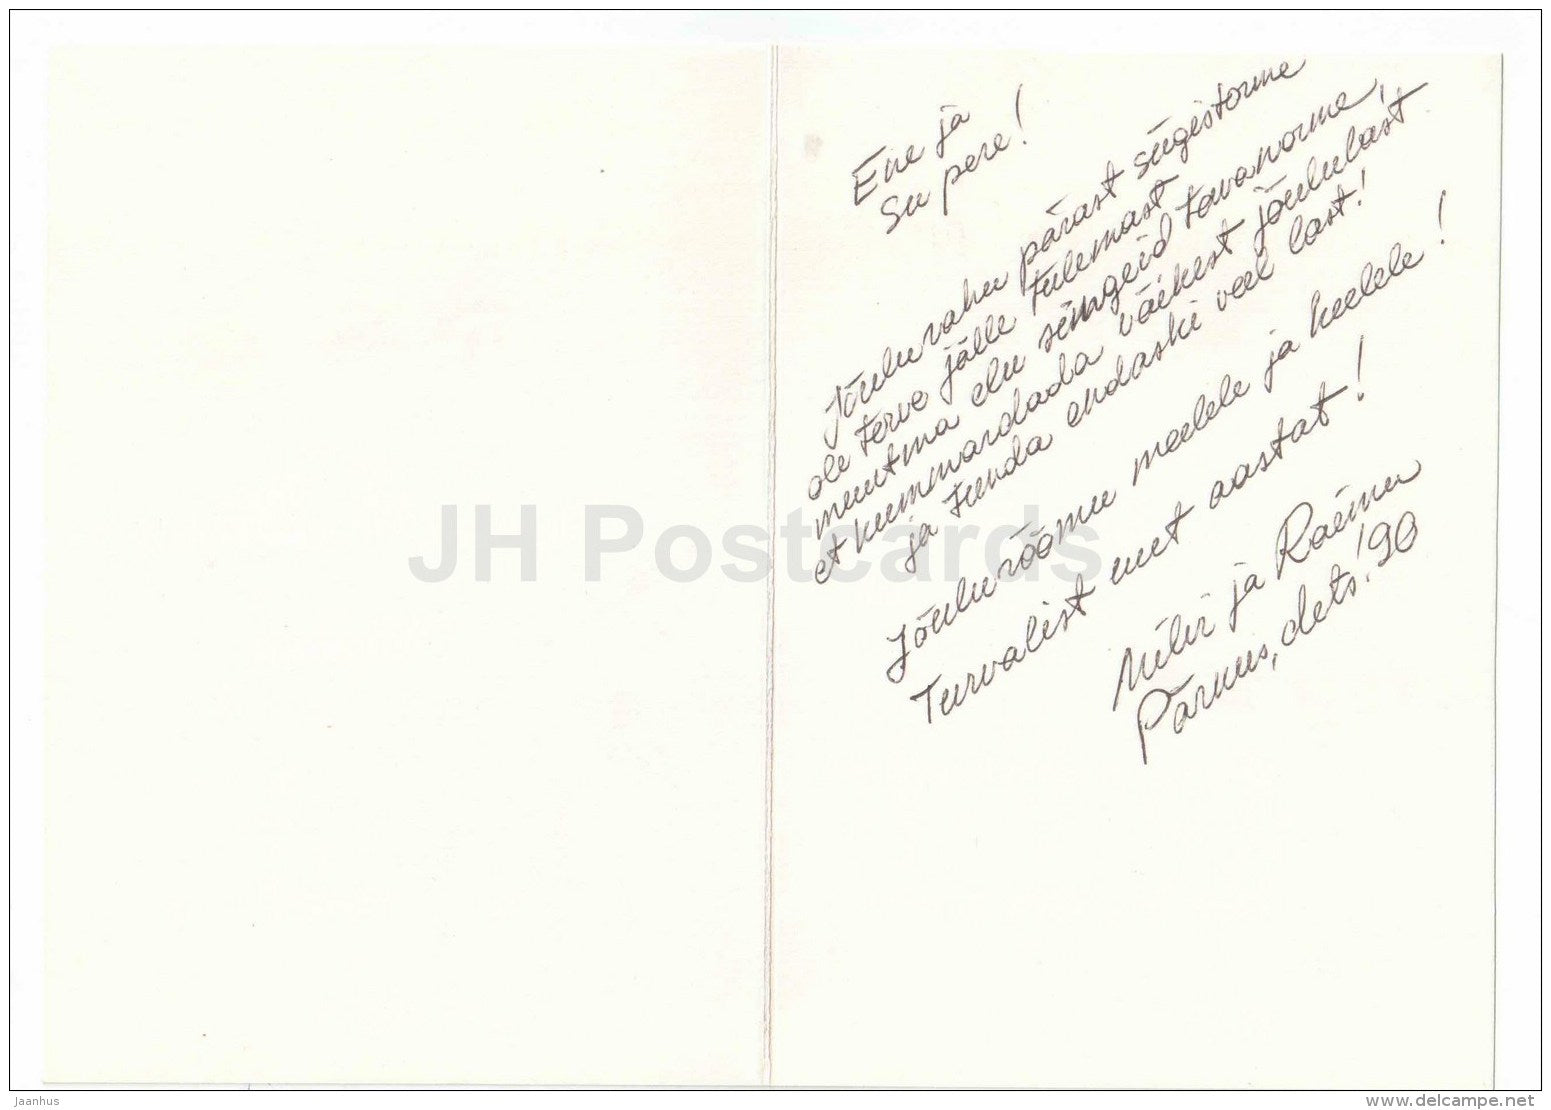 Ene ja
Su pere!
Jõulurahu pärast sügistorme
ole terve jälle tulemast
muutma elu sängeid tavanorme,
et kummardada väikest jõululast
ja tunda endaski veel last!
Jõulurõõmu meelele ja keelele!
Turvalist uut aastat!
Milvi ja Raimu
Pärnus, dets. '90
JH Postcards
Jaanhus
www.delcampe.net